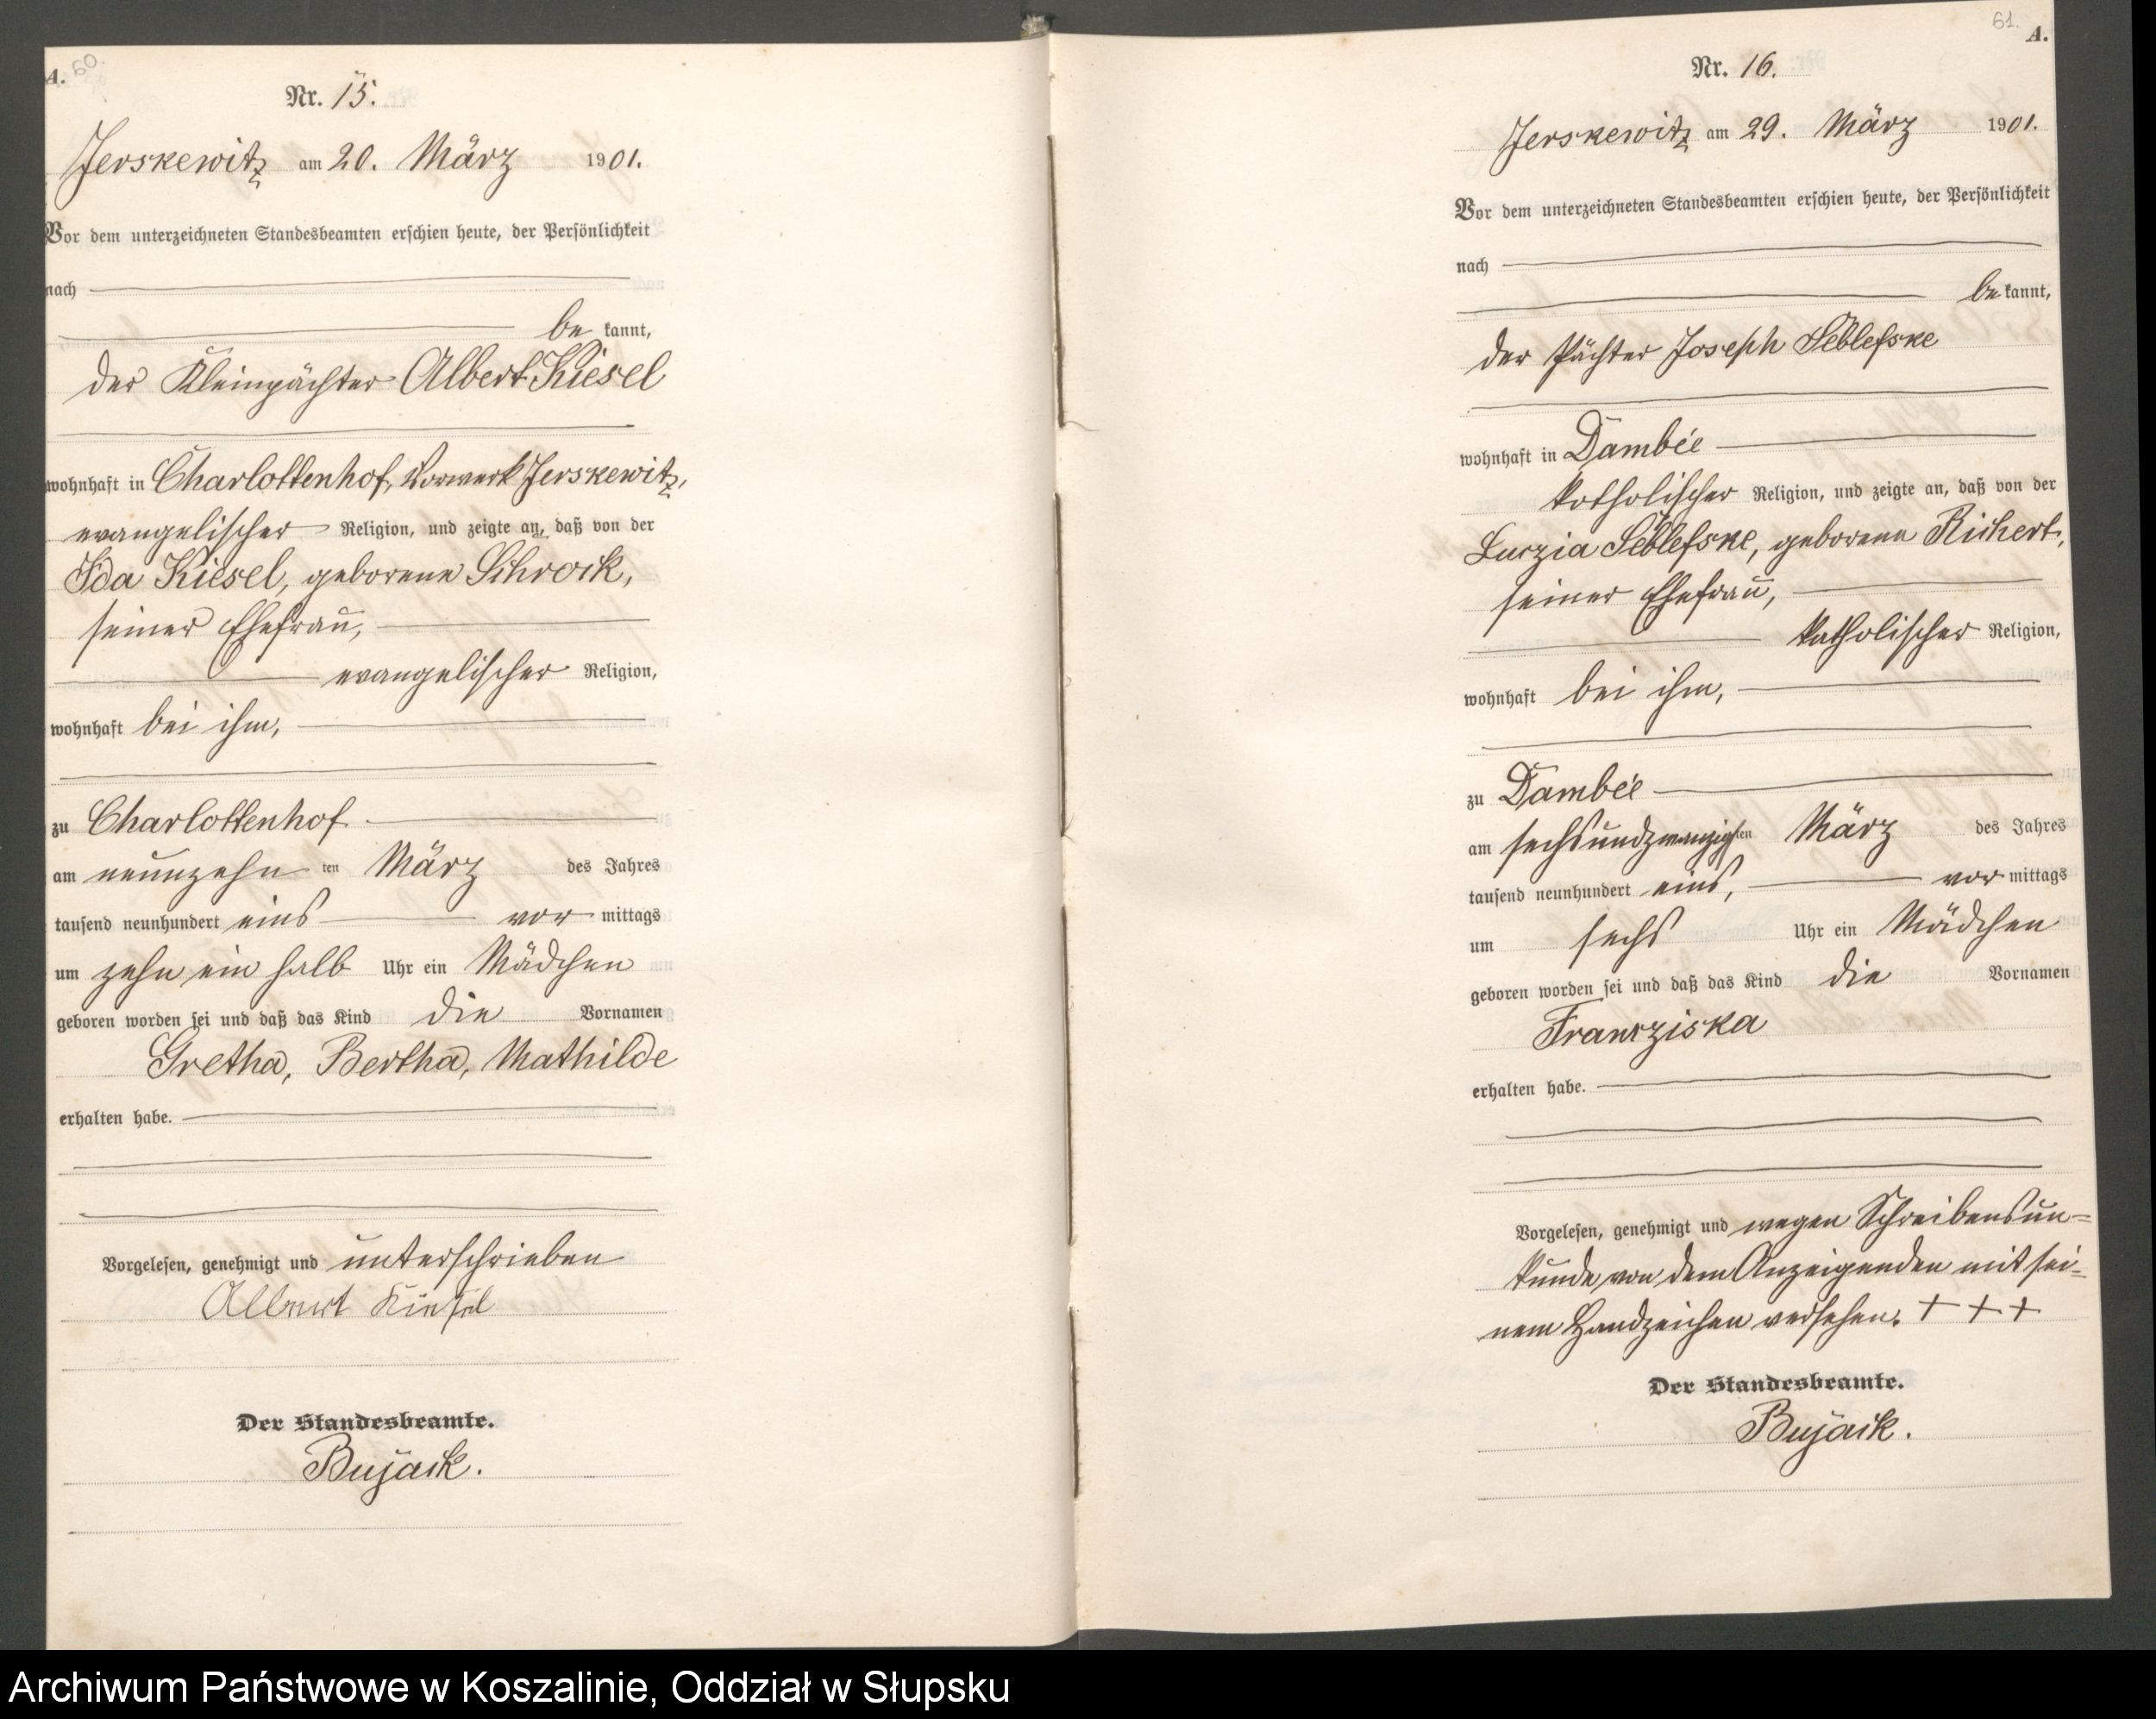 A. 60.
Nr. 15.
Jerskewitz am 20. März 1901.
Vor dem unterzeichneten Standesbeamten erschien heute, der Persönlichkeit
nach
be kannt,
der Kleinpächter Albert Kiesel
wohnhaft in Charlottenhof, Vorwerk Jerskewitz,
evangelischer Religion, und zeigte an, daß von der
Ida Kiesel, geborene Schrock,
seiner Ehefrau,
evangelischer Religion,
wohnhaft bei ihm,
zu Charlottenhof
am neunzehn ten März des Jahres
tausend neunhundert eins vor mittags
um zehn ein halb Uhr ein Mädchen
geboren worden sei und daß das Kind die Vornamen
Gretha, Bertha, Mathilde
erhalten habe.
Vorgelesen, genehmigt und unterschrieben
Albert Kiesel
Der Standesbeamte.
Bujack.
61. A.
Nr. 16.
Jerskewitz am 29. März 1901.
Vor dem unterzeichneten Standesbeamten erschien heute, der Persönlichkeit
nach
be kannt,
der Pächter Joseph
wohnhaft in Dambée
katholischer Religion, und zeigte an, daß von der
Luczia geborene Richert,
seiner Ehefrau,
katholischer Religion,
wohnhaft bei ihm,
zu Dambée
am sechsundzwanzigsten März des Jahres
tausend neunhundert eins, vor mittags
um sechs Uhr ein Mädchen
geboren worden sei und daß das Kind die Vornamen
Franziska
erhalten habe.
Vorgelesen, genehmigt und wegen Schreibensun=
kunde von dem Anzeigenden mit sei=
nem Handzeichen versehen. + + +
Der Standesbeamte.
Bujack.
Archiwum Państwowe w Koszalinie, Oddział w Słupsku